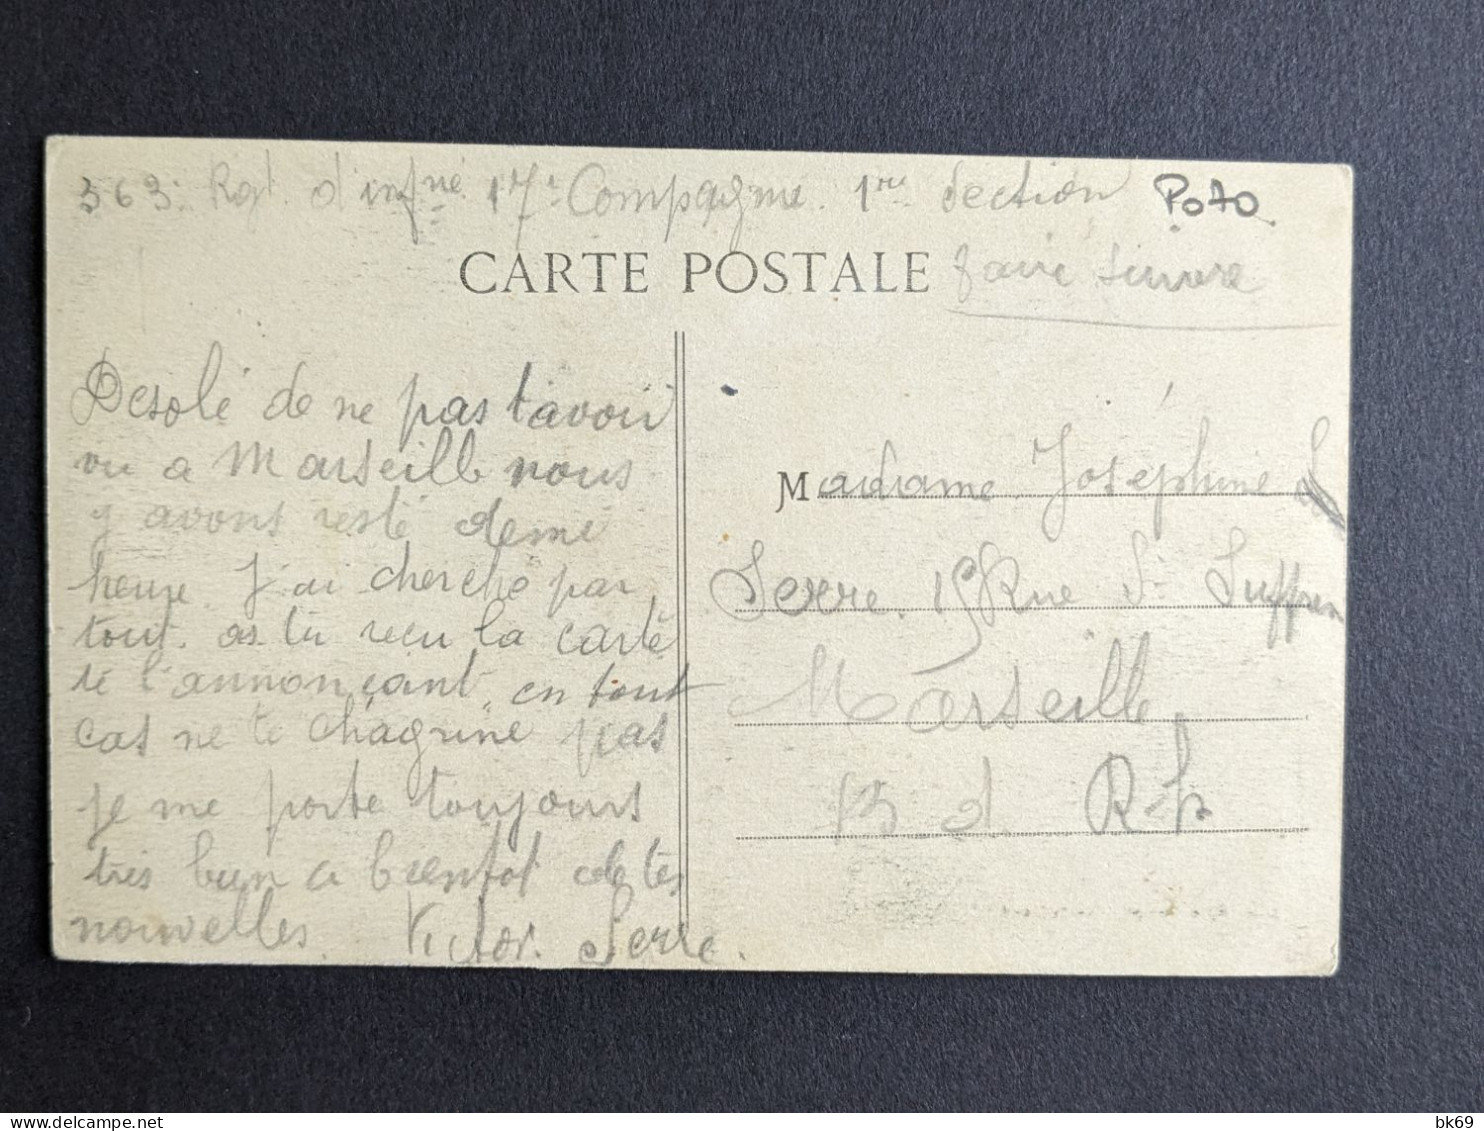 363. Rgt. d'infrie 17e Compagnie. 1re Section Poto
CARTE POSTALE faire suivre
Desolé de ne pas t'avoir
vu a Marseille nous
y avons resté demi
heure J'ai cherché par
tout. as tu reçu la carte
te l'annonçant, en tout
cas ne te chagrine pas
je me porte toujours
très bien a bientot de tes
nouvelles. Victor. Serre.
Madame Joséphine
Serre. 15 Rue St Suffren
Marseille
B d R-h
bk69